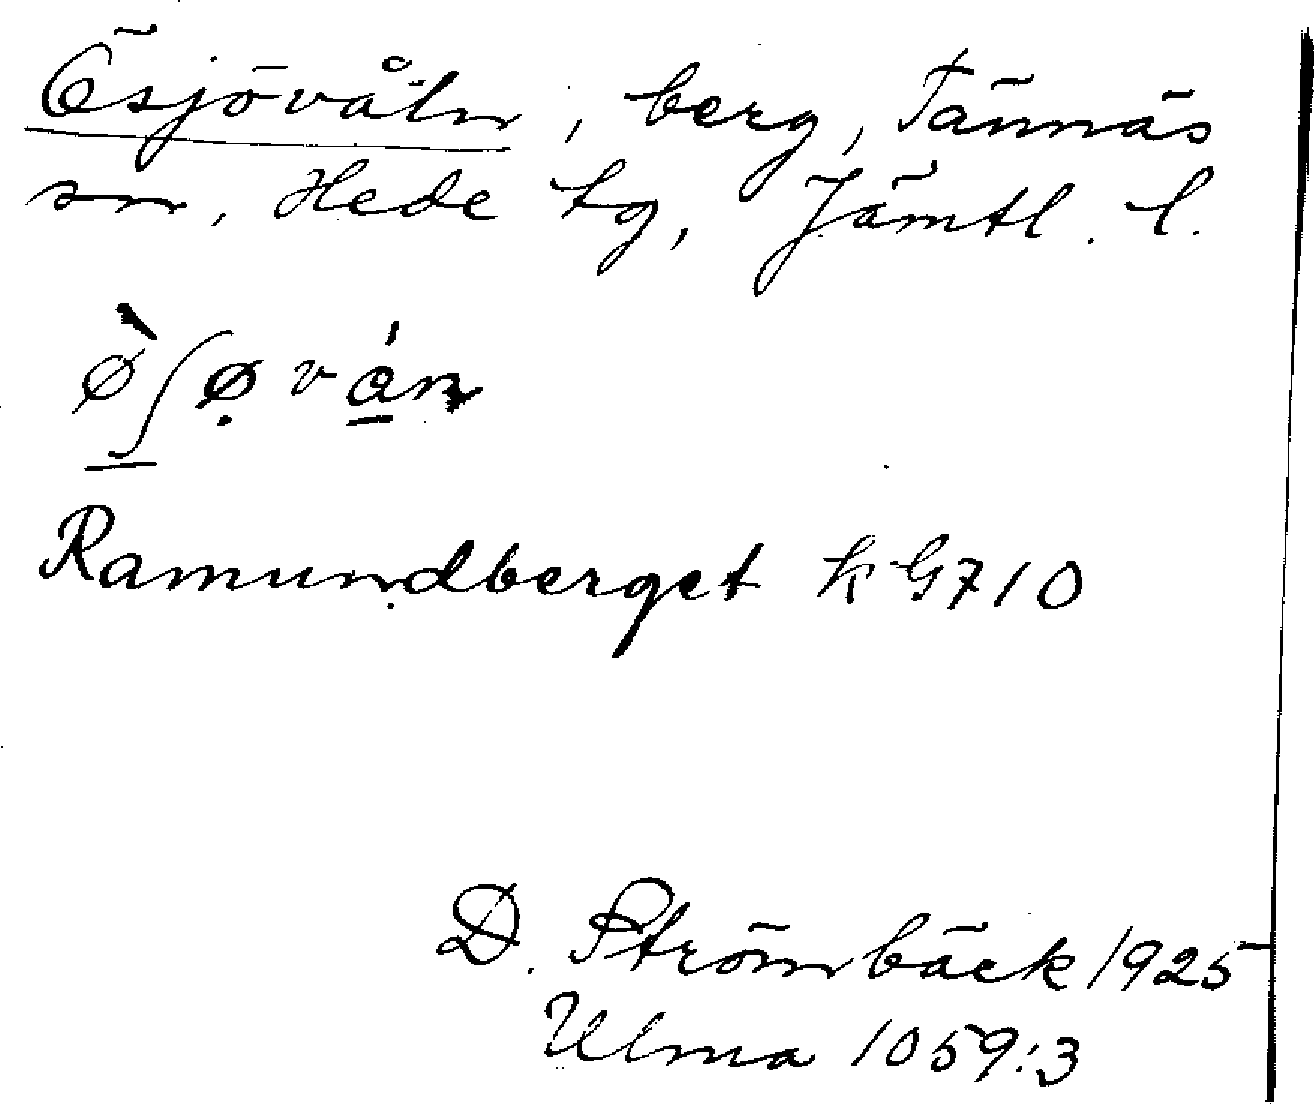 Ösjövåln, berg, Tännäs
sn, Hede tg, Jämtl. l.
ø̀ʃø̣ván
Ramundberget k G710
D. Strömbäck 1925
Ulma 1059:3